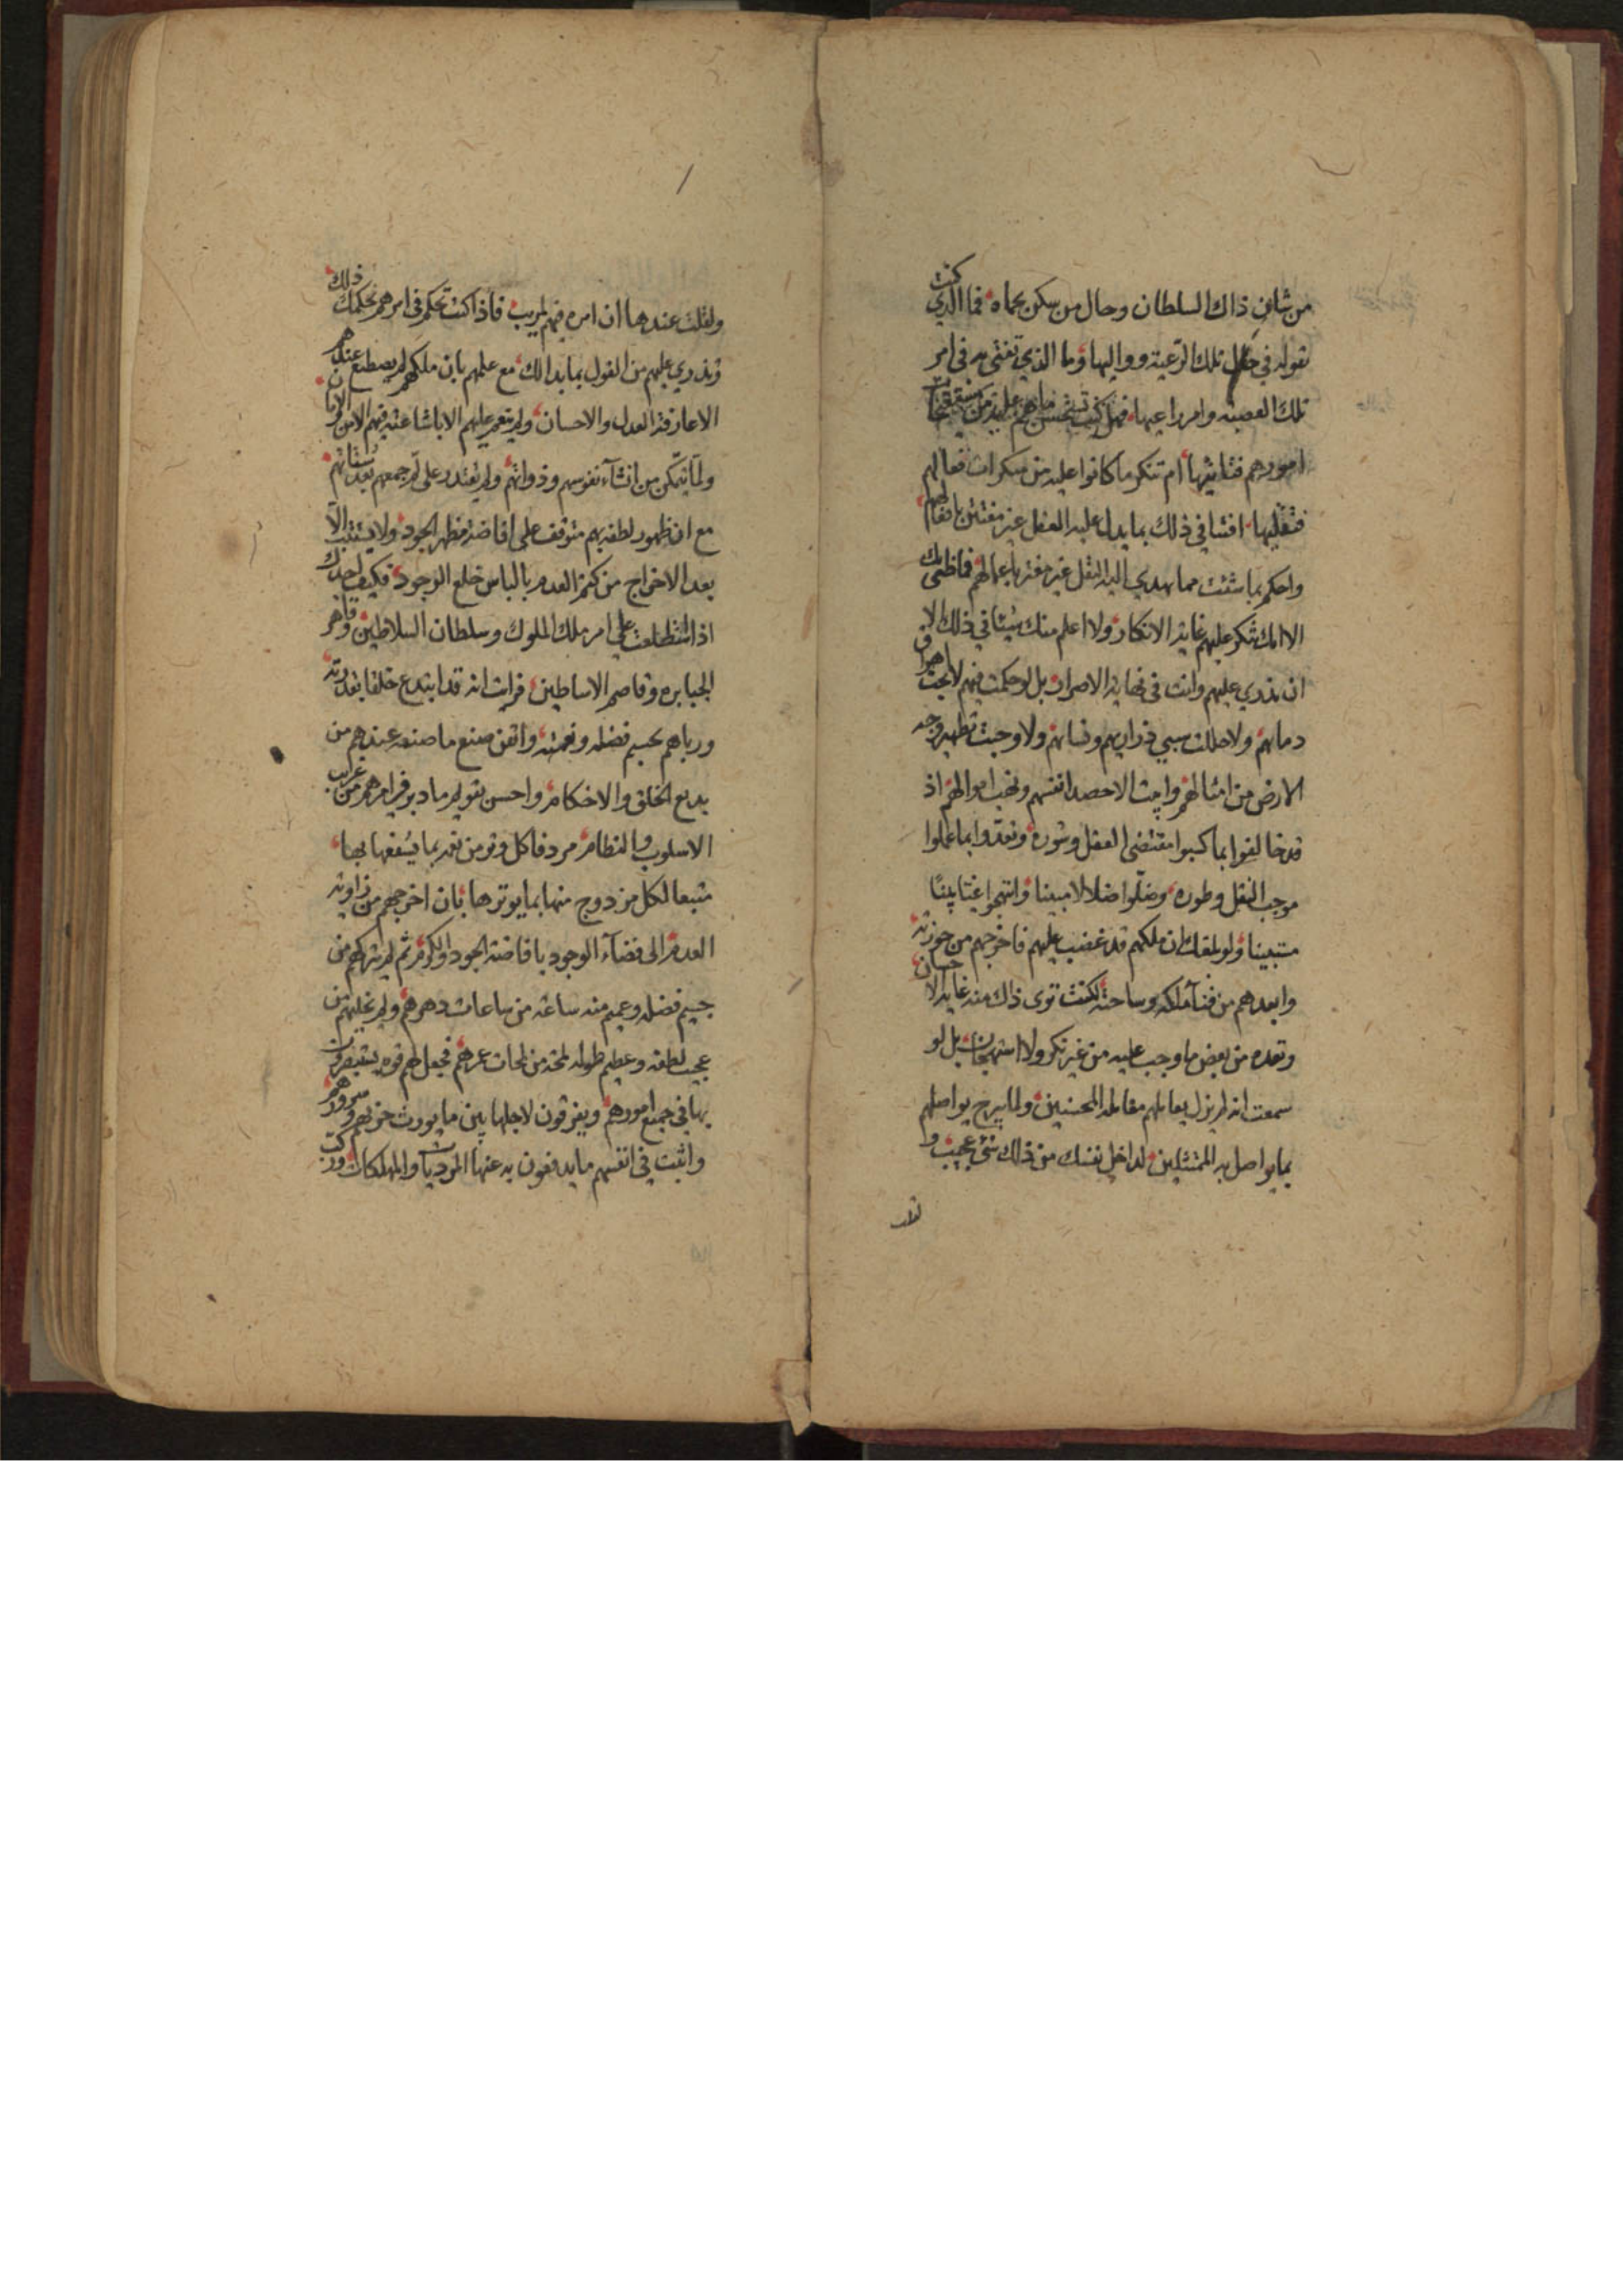 من شان ذاك السلطان وحال من سكن بحماه فما الذي كنت
تقوله في تلك الرعية وواليها وما الذي تفتى به في امر
تلك العصبة وامر راعيها فهل كنت تستحسن ماهم عليه من
امورهم فتاتيها ام تنكر ما كانوا عليه من منكرات فعالهم
فتقليها افتنا في ذلك بما يدل عليه العقل غير مفتتن بافعالهم
واحكم بما شئت مما يهدي اليه النقل غير مغتر باعمالهم فما ظني بك
الا انك تنكر عليهم غاية الانكار ولا اعلم منك شيئا في ذلك الا
ان تزري عليهم وانت في نهاية الاصرار بل لو حكمت فيهم لابحت اهراق
دمائهم ولاحللت سبي ذراريهم ونسائهم ولاوجبت تطهير وجه
الارض من امثالهم وابحت الاحصد انفسهم ونهب اموالهم اذ
قد خالفوا بما كسبوا مقتضى العقل وشوره وتعدوا بما عملوا
موجب النقل وطوره وضلوا ضلالا مبينا وانتهجوا غيا
مستبينا ولو بلغك ان ملكهم قد غضب عليهم فاخرجهم من حوزته
وابعدهم من فناء ملكه وساحته لكنت ترى ذلك منه غاية الاحسان
وتعده من بعض ما وجب عليه من غير نكر ولا استهجان بل لو
سمعت انه لم يزل يعاملهم مقابلة المحسنين ولما يبرح يواصلهم
بما يواصل به الممتثلين لداخل نفسك من ذلك شئ عجيب و
لقلت
ولقلت عندها ان امره فيهم لمريب فاذا كنت تحكم في امرهم بحكمك ذلك
وتزري عليهم من القول بما بدا لك مع علمهم بان ملكهم لم يصطنع عندهم
الا عارفة العدل والاحسان ولم ينعم عليهم الا باشاعته فيهم الامن والامان
ولما يتمكن من انشاء نفوسهم وذواتهم ولم يقتدر على لم جمعهم بعد شتاتهم
مع ان ظهور لطفه بهم متوقف على افاضة مظهر الجود ولا يستتب الا
بعد الاخراج من كتم العدم بالباس خلع الوجود فكيف يجدك
اذا استطلعت على امر ملك الملوك وسلطان السلاطين وقاهر
الجبابره وقاصم الاساطين فرايت انه قد ابتدع خلقا بقدرته
ورباهم بجسيم فضله ونعمته واتقن صنع ما صنعه عندهم من
بديع الخلق والاحكام واحسن تقويم ما دبر في امرهم من غرايب
الاسلوب والنظام مردفا كل وتر من نعمه بما يشفعها بها
متبعا لكل مزدوج منها بما يوترها بان اخرجهم من زاوية
العدم الى فضاء الوجود بافاضة الجود والكرم ثم لم يتركهم من
جسيم فضله وعميم منه ساعة من ساعات دهرهم ولم يخليهم من
عجيب لطفه وعظيم طوله لمحة من لمحات عمرهم فجعل لهم قوه يستبصرون
بها في جميع امورهم ويفرقون لاجلها بين ما يورث حزنهم وسرورهم
واثبت في انفسهم ما يدفعون به عنها الموذيات والمهلكات وركب